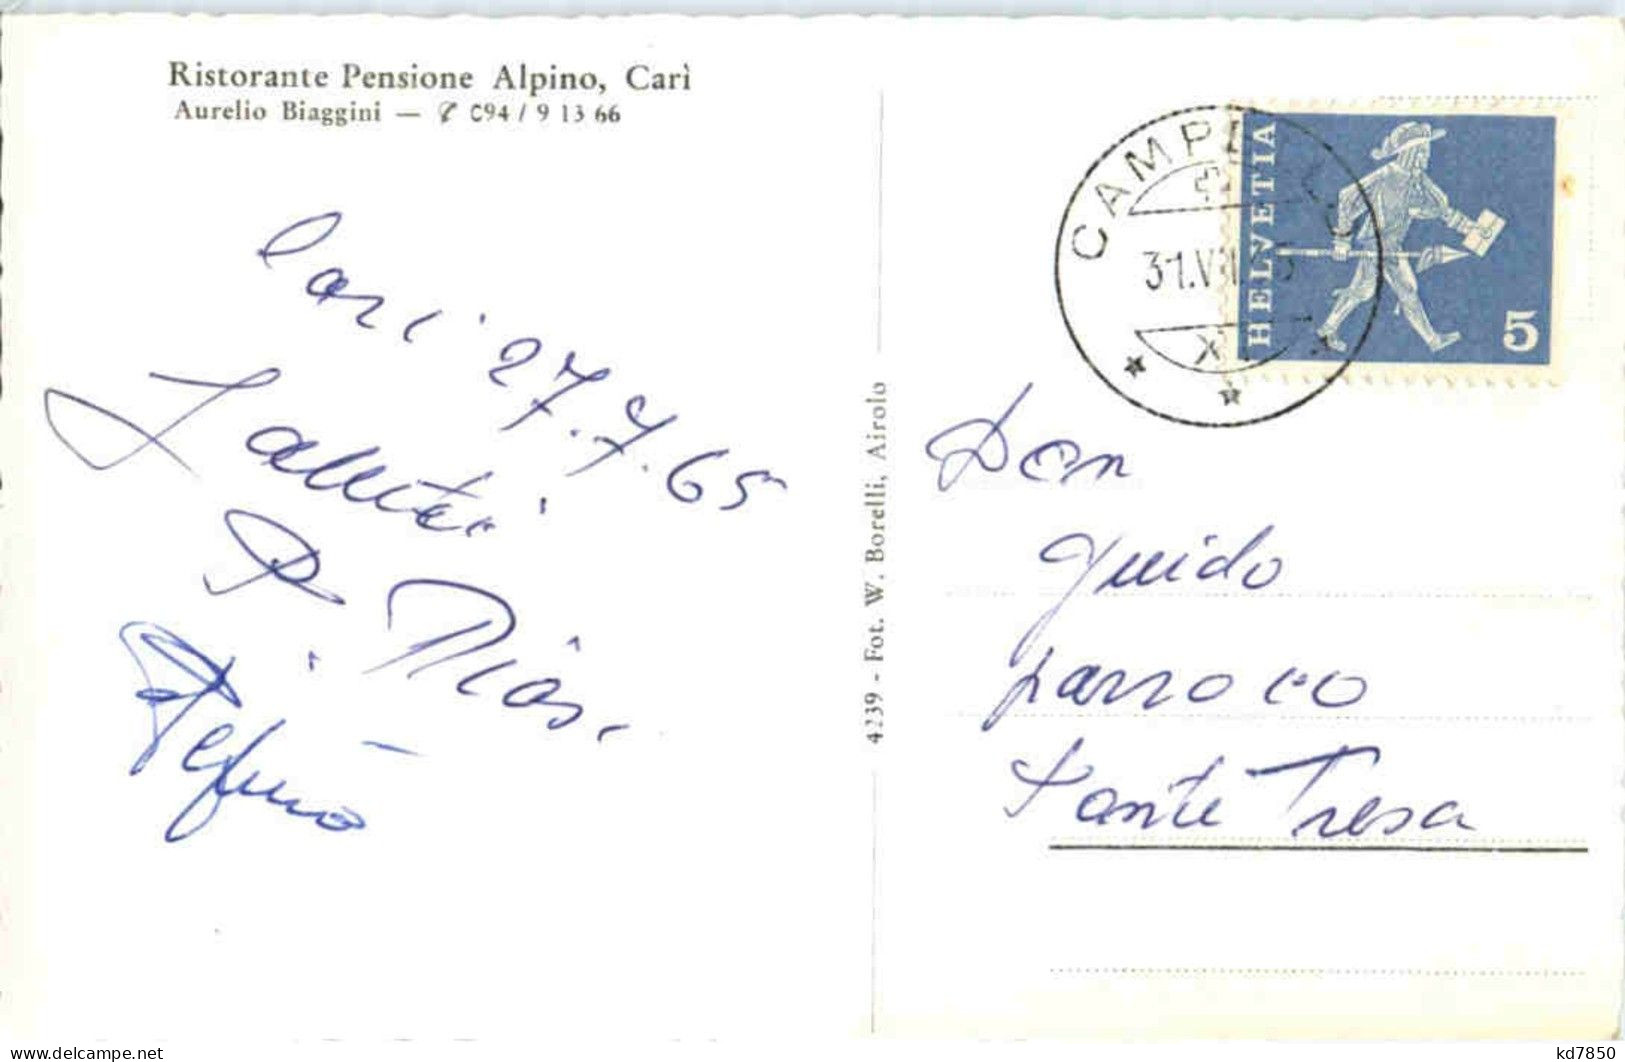 Ristorante Pensione Alpino, Carì
Aurelio Biaggini — ✆ 094 / 9 13 66
Carì 27.7.65
Saluti
4239 - Fot. W. Borelli, Airolo
HELVETIA
5
31.VII.
XI
Don
Guido
parroco
Ponte Tresa
kd7850
www.delcampe.net